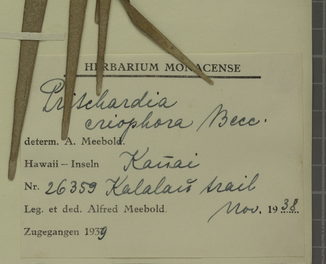 HERBARIUM MONACENSE
Pritchardia
eriophora Becc.
determ. A. Meebold.
Hawaii – Inseln Kauai
Nr. 26359 Kalalau trail
Leg. et ded. Alfred Meebold Nov. 1938.
Zugegangen 1939